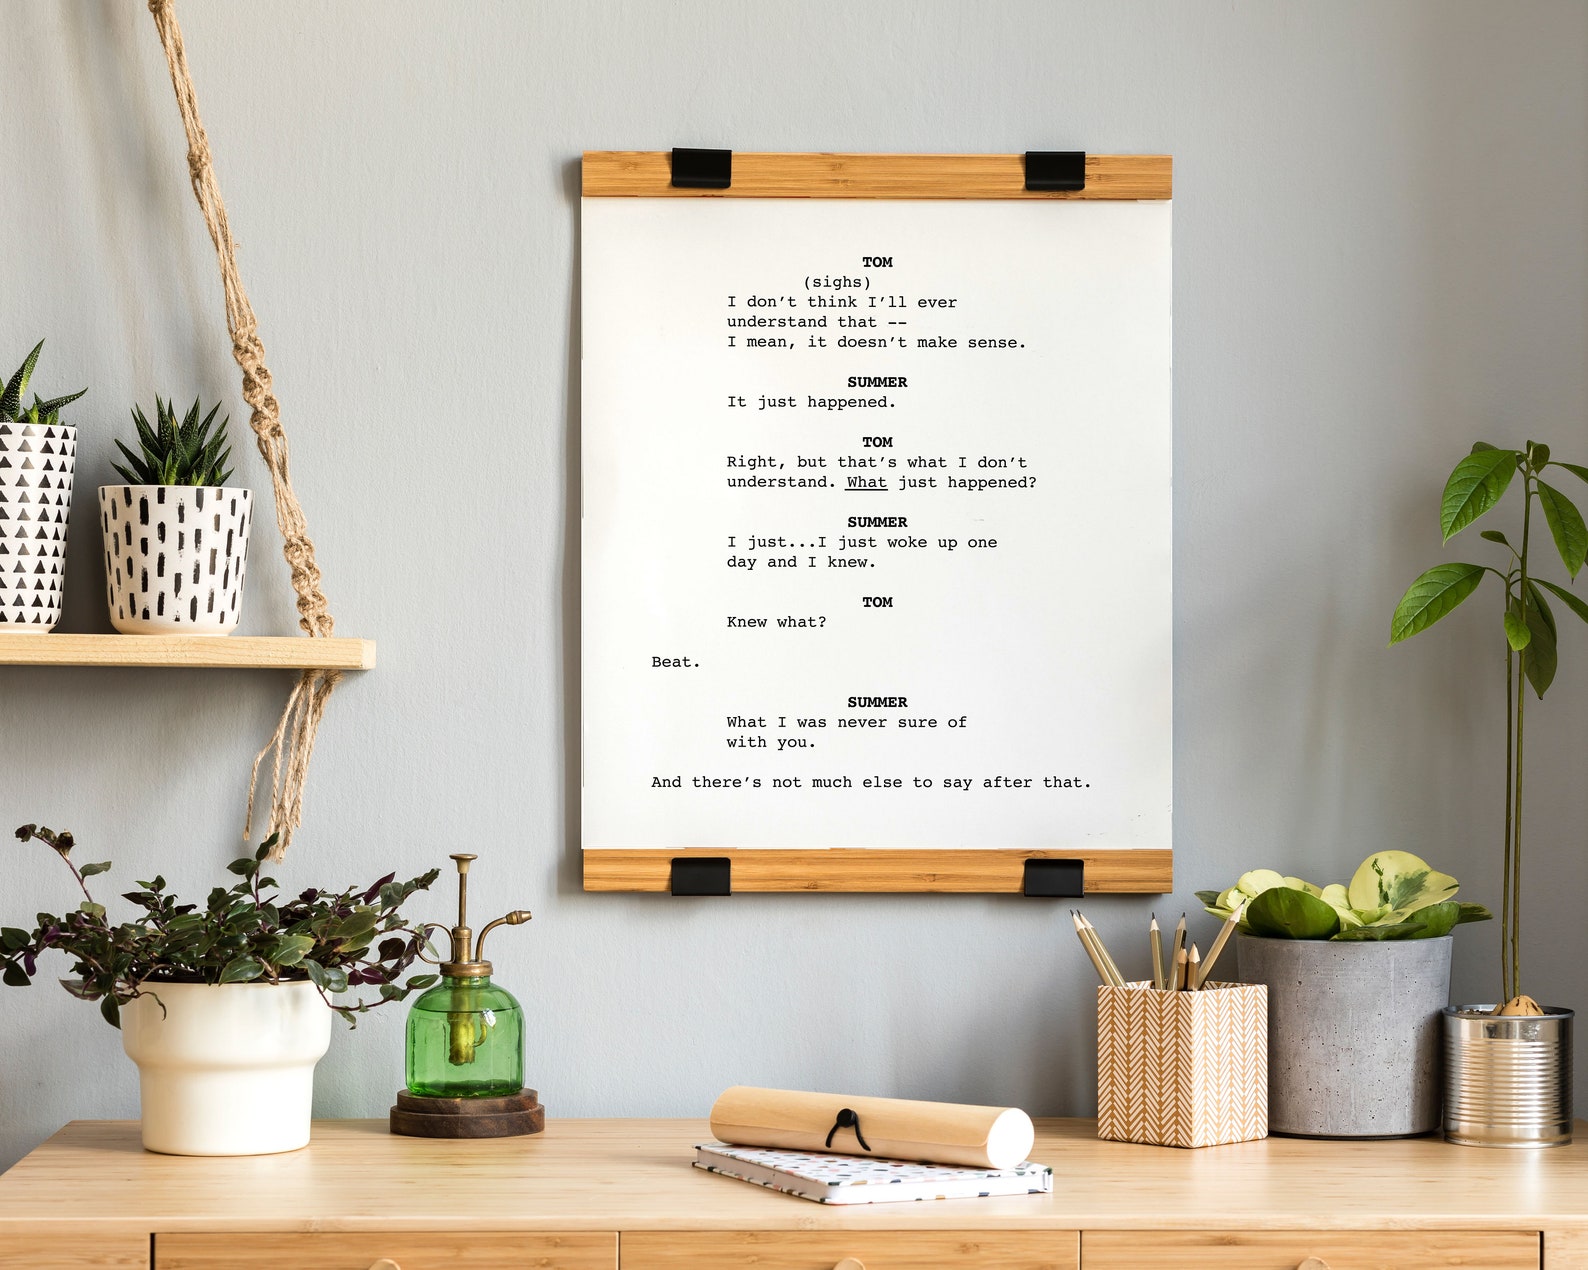 TOM
(sighs)
I don't think I'll ever
understand that --
I mean, it doesn't make sense.
SUMMER
It just happened.
TOM
Right, but that's what I don't
understand. What just happened?
SUMMER
I just...I just woke up one
day and I knew.
TOM
Knew what?
Beat.
SUMMER
What I was never sure of
with you.
And there's not much else to say after that.